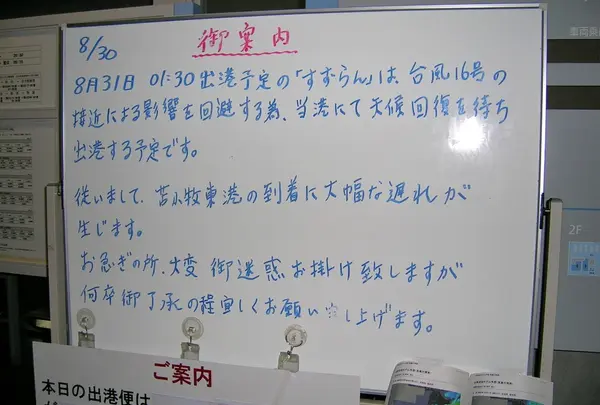 8/30
御案内
8月31日 01:30出港予定の「すずらん」は、台風16号の
接近による影響を回避する為、当港にて天候回復を待ち
出港する予定です。
従いまして、苫小牧東港の到着に大幅な遅れが
生じます。
お急ぎの所、大変 御迷惑お掛け致しますが
何卒御了承の程宜しくお願い申し上げます。
ご案内
本日の出港便は
2F